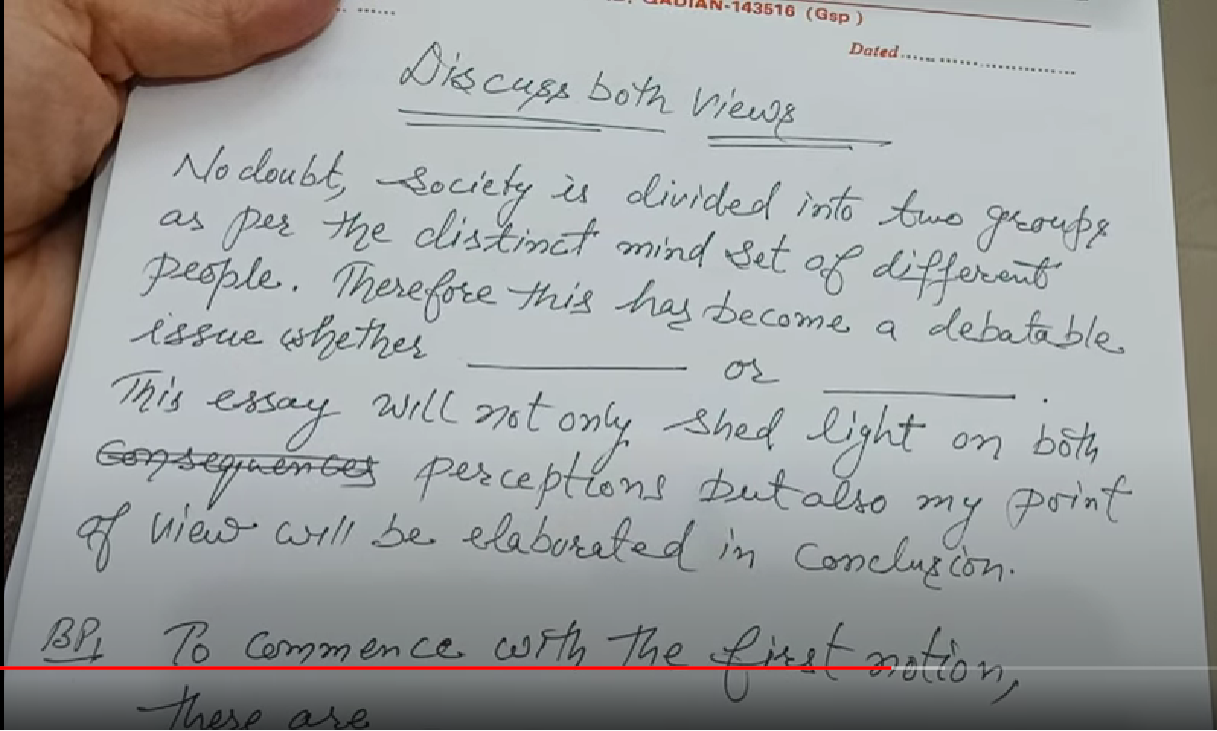 QADIAN-143516 (Gsp)
Dated
Discuss both Views
No doubt, Society is divided into two groups
as per the distinct mind set of different
people. Therefore this has become a debatable
issue whether ________ or ________.
This essay will not only shed light on both
Consequences perceptions but also my point
of view will be elaborated in Conclusion.
BP1 To commence with the first notion,
these are